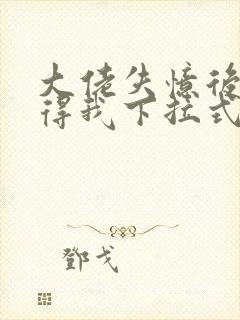 大佬失憶後
得我下拉式
鄧戈